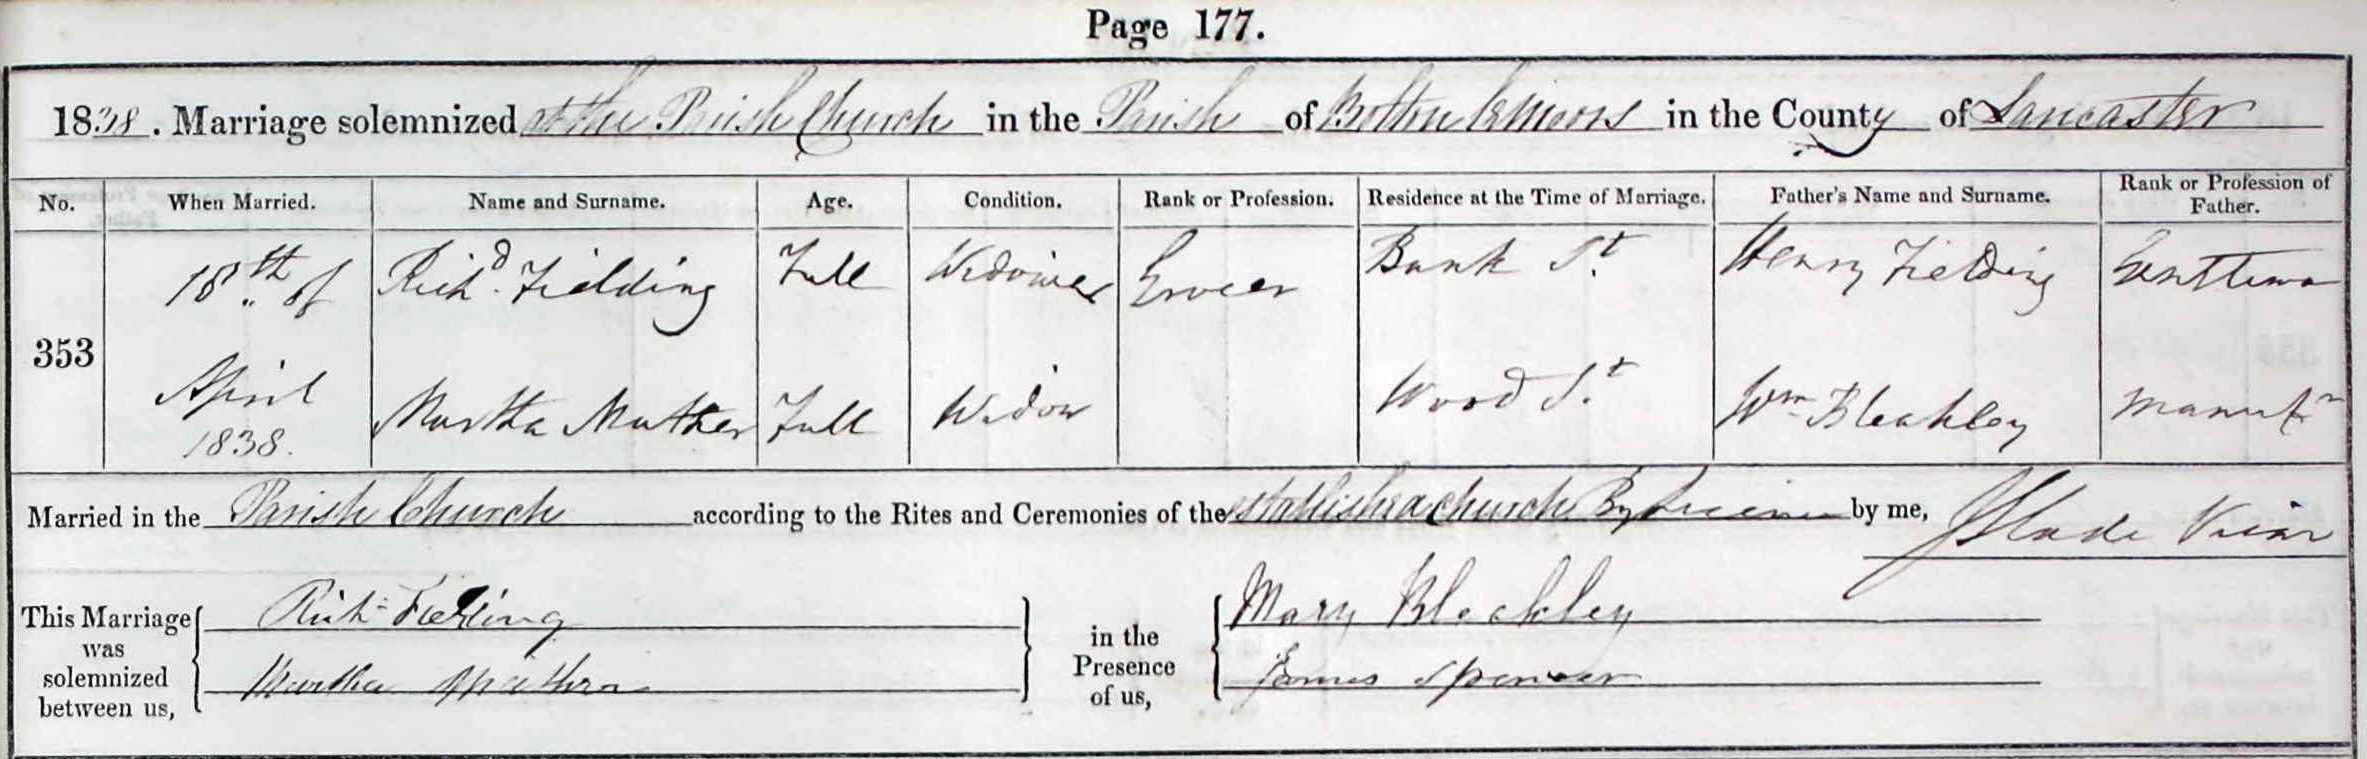 Page 177.
1838. Marriage solemnized at the Parish Church in the Parish of Bolton le Moors in the County of Lancaster
No. When Married. Name and Surname. Age. Condition. Rank or Profession. Residence at the Time of Marriage. Father's Name and Surname. Rank or Profession of Father.
353
18th of April 1838.
Richd. Fielding Full Widower Grocer Bank St. Henry Fielding Gentleman
Martha Mather Full Widow Wood St. Wm Bleakley Manufr
Married in the Parish Church according to the Rites and Ceremonies of the Established Church By Licence by me, J Slade Vicar
This Marriage was solemnized between us,
Richd Fielding
Martha Mather
in the Presence of us,
Mary Bleakley
James Spencer